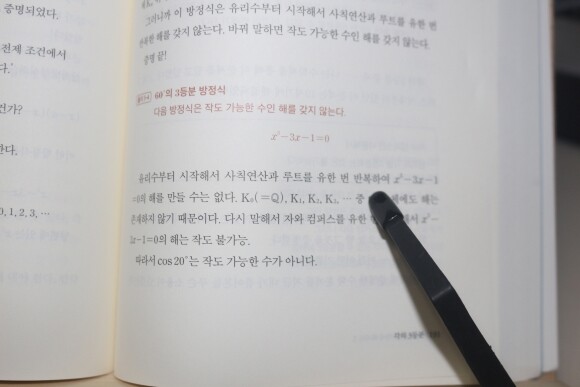 증명되었다.
전제 조건에서
다."
건가?
한다.
0, 1, 2, 3, …
그러니까 이 방정식은 유리수부터 시작해서 사칙연산과 루트를 유한 번
반복한 해를 갖지 않는다. 바꿔 말하면 작도 가능한 수인 해를 갖지 않는다.
증명 끝!
60°의 3등분 방정식
다음 방정식은 작도 가능한 수인 해를 갖지 않는다.
x³-3x-1=0
유리수부터 시작해서 사칙연산과 루트를 유한 번 반복하여 x³-3x-1
=0의 해를 만들 수는 없다. K₀(=Q), K₁, K₂, K₃, … 중 에도 해는
존재하지 않기 때문이다. 다시 말해서 자와 컴퍼스를 유한 해서 x³-
3x-1=0의 해는 작도 불가능.
따라서 cos 20°는 작도 가능한 수가 아니다.